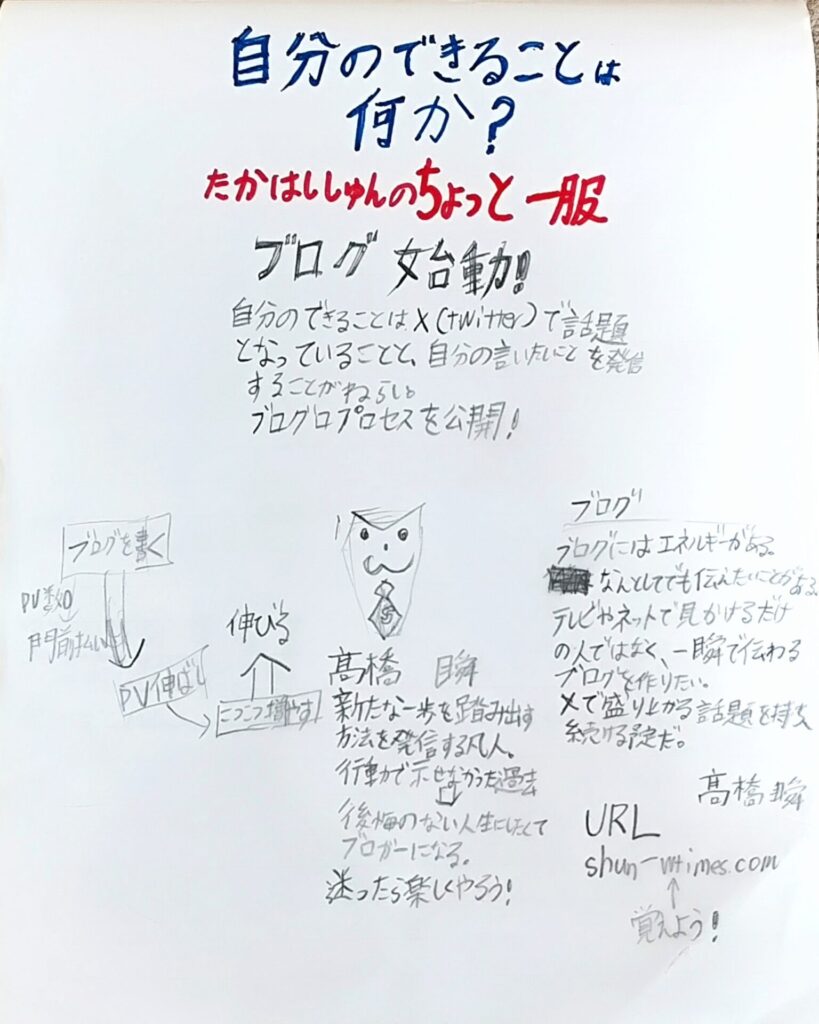 自分のできることは
何か?
たかはししゅんのちょっと一服
ブログ 始動!
自分のできることはX(twitter)で話題
となっていることと、自分の言いたいことを発信
することがねらい。
ブログロプロセスを公開!
ブログを書く
PV数0
門前払い
PV伸ばし
こつこつ増やす!
伸びる
$
髙橋 瞬
新たな一歩を踏み出す
方法を発信する凡人。
行動で示せなかった過去
後悔のない人生にしたくて
ブロガーになる。
迷ったら楽しくやろう!
ブログ
ブログにはエネルギーがある。
なんとしてでも伝えたいことがある。
テレビやネットで見かけるだけ
の人ではなく、一瞬で伝わる
ブログを作りたい。
Xで盛り上がる話題を
続ける予定だ。
髙橋瞬
URL
shun-wtimes.com
覚えよう!